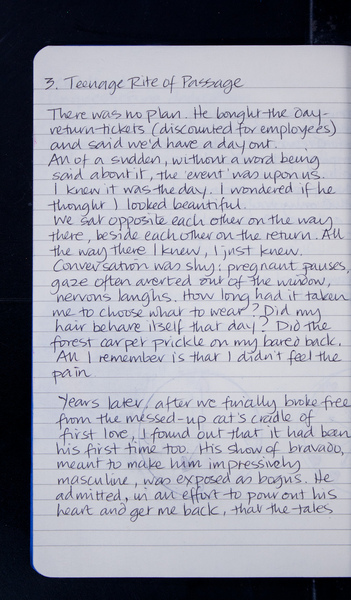 3. Teenage Rite of Passage
There was no plan. He bought the day-
return-tickets (discounted for employees)
and said we'd have a day out.
All of a sudden, without a word being
said about it, the 'event' was upon us.
I knew it was the day. I wondered if he
thought I looked beautiful.
We sat opposite each other on the way
there, beside each other on the return. All
the way there I knew, I just knew.
Conversation was shy: pregnant pauses,
gaze often averted out of the window,
nervous laughs. How long had it taken
me to choose what to wear? Did my
hair behave itself that day? Did the
forest carpet prickle on my bared back.
All I remember is that I didn't feel the
pain.
Years later, after we finally broke free
from the messed-up cat's cradle of
first love, I found out that it had been
his first time too. His show of bravado,
meant to make him impressively
masculine, was exposed as bogus. He
admitted, in an effort to pour out his
heart and get me back, that the tales